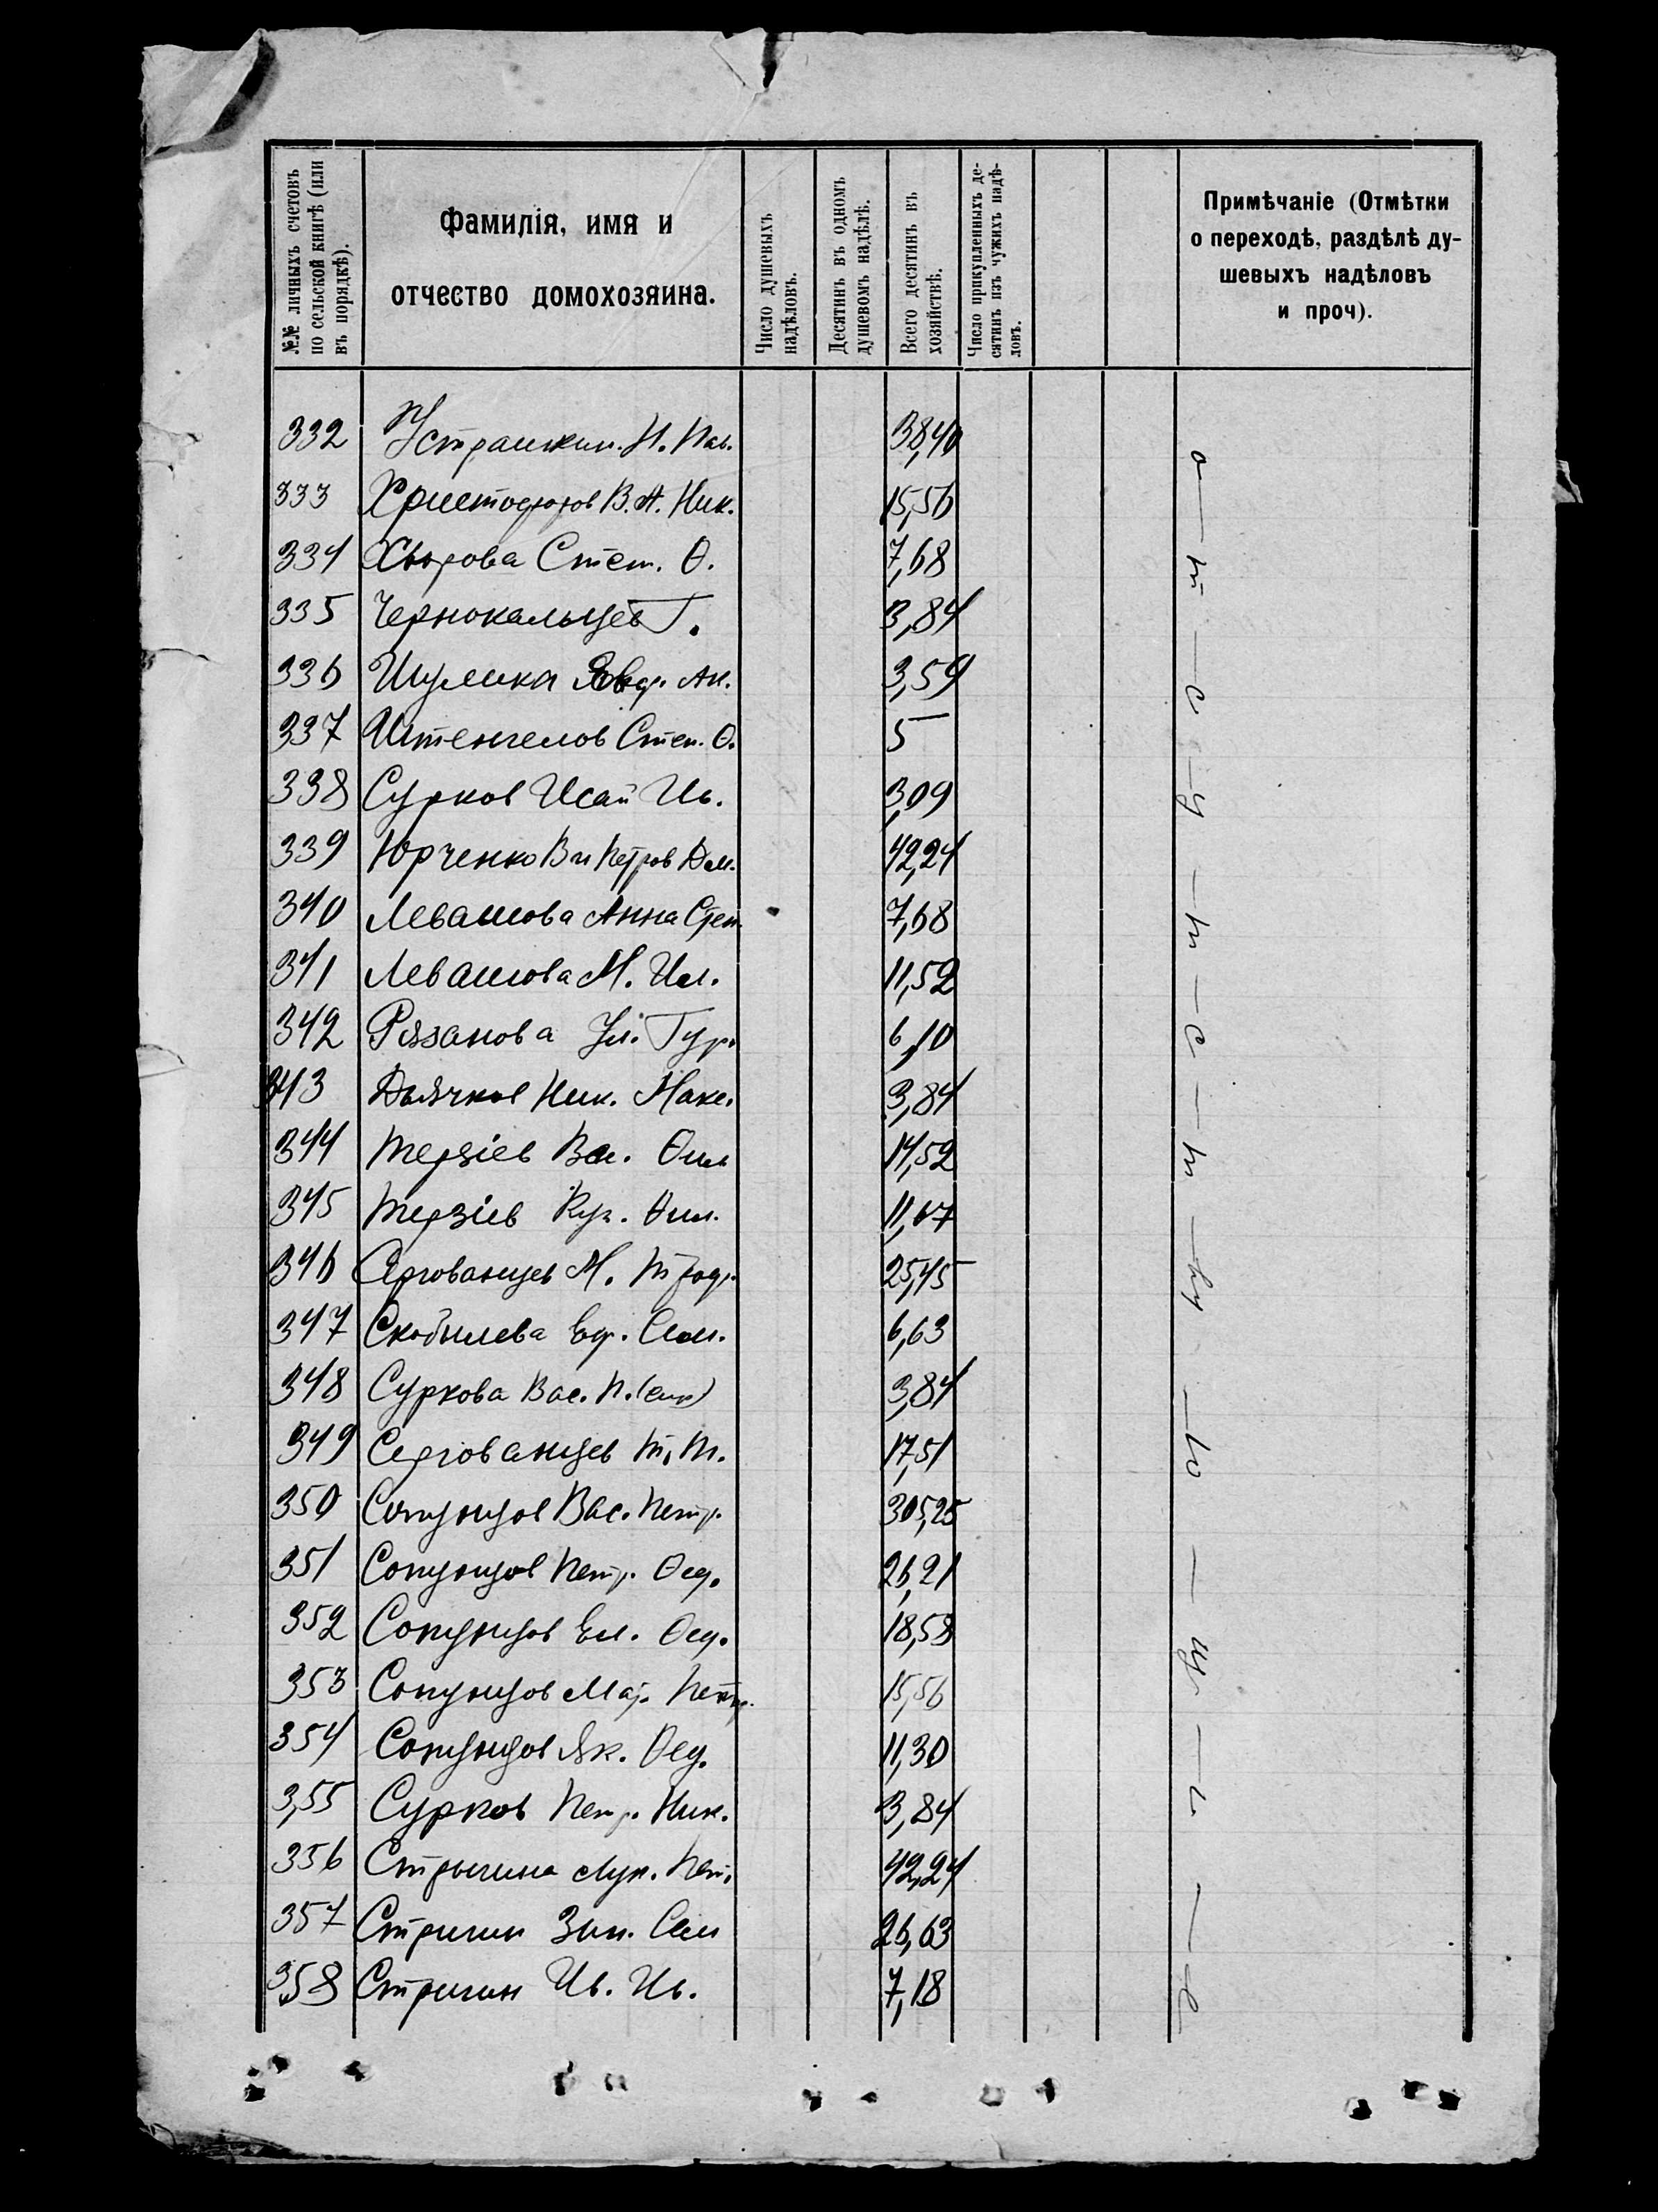 №№ личныхъ счетовъ
по сельской книгѣ (или
въ порядкѣ).
Фамилія, имя и
отчество домохозяина.
Число душевыхъ
надѣловъ.
Десятинъ въ одномъ
душевомъ надѣлѣ.
Всего десятинъ въ
хозяйствѣ.
Число прикупленныхъ де-
сятинъ изъ чужихъ надѣ-
ловъ.
Примѣчаніе (Отмѣтки
о переходѣ, раздѣлѣ ду-
шевыхъ надѣловъ
и проч).
332 Устрашкин. И. Пав. 38,40
333 Христофоров В. А. Ник. 15,56
334 Хворова Степ. Ѳ. 7,68
335 Чернокальцев Г. 3,84
336 Ак. 3,59
337 Штенгелов Степ. Ѳ. 5
338 Сурков Исай Ив. 3,09
339 Юрченко Петров 42,24
340 Левашова Анна Степ. 7,68
341 Левашова М. Ил. 11,52
342 Рязанова Ул. Гур. 6,10
343 Дьячков Ник. Макс. 3,84
344 Терзіев Вас. Ѳил 14,52
345 Терзіев Ѳил. 11,67
346 Сергованцев М. Троф. 25,45
347 Скобылева Еф. Сем. 6,63
348 Суркова Вас. П. 3,84
349 Сергованцев Т. Т. 17,51
350 Сопунцов Вас. Петр. 305,25
351 Сопунцов Петр. Ѳед. 26,21
352 Сопунцов Ел. Ѳед. 18,58
353 Сопунцов Мар. Петр. 15,56
354 Сопунцов Як. Ѳед. 11,30
355 Сурков Петр. Ник. 3,84
356 Стрыгина Лук. Пет. 42,24
357 Стригин Зин. Сем 26,63
358 Стригин Ив. Ив. 7,18
о — т — с — у — т — с — т — ву — ю — щ — і — е